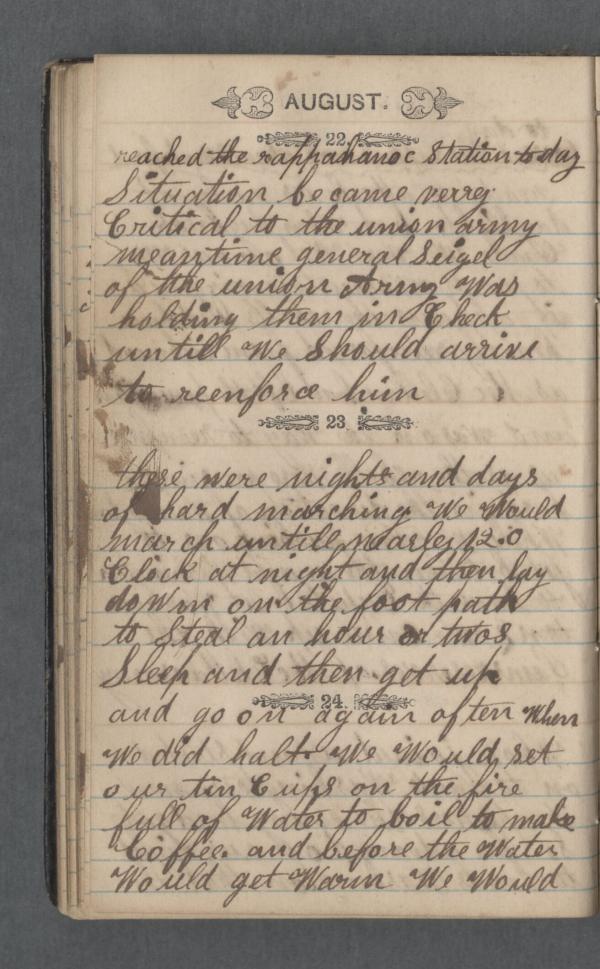 AUGUST.
22.
reached the rapphahanoc Station to day
Situation became verrey
Critical to the union army
meantime general Seigel
of the union Army Was
holding them in Check
untill We Should arrive
to reenforce him
23
these were nights and days
of hard marching We Would
march untill nearley 12.0
Clock at night and then lay
down on the foot path
to Steal an hour or twos
Sleep and then get up
24.
and go on again often When
We did halt We Would set
our tin Cups on the fire
full of Water to boil to make
Coffee. and before the Water
Would get Warm We Would